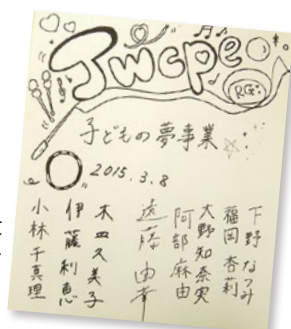 Jwcpe
R.G.
子どもの夢事業
2015.3.8
下野なつみ
福岡杏莉
大野知奈実
阿部麻由
遠藤由季
木皿久美子
伊藤利恵
小林千真理